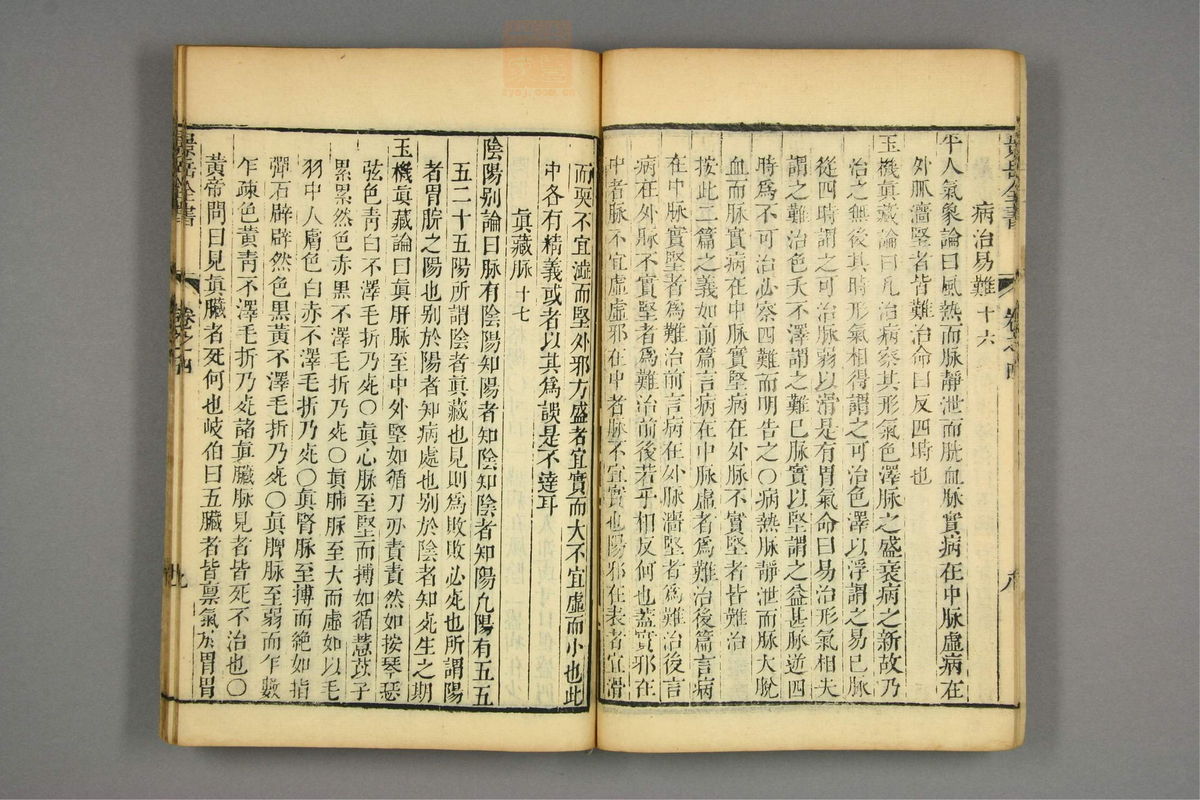 景岳全書
卷之四
八
病治易難 十六
平人氣象論曰風熱而脉靜泄而脱血脉實病在中脉虛病在
外脉濇堅者皆難治命曰反四時也
玉機眞藏論曰凡治病察其形氣色澤脉之盛衰病之新故乃
治之無後其時形氣相得謂之可治色澤以浮謂之易已脉
從四時謂之可治脉弱以滑是有胃氣命曰易治形氣相失
謂之難治色夭不澤謂之難已脉實以堅謂之益甚脉逆四
時爲不可治必察四難而明告之〇病熱脉靜泄而脉大脫
血而脉實病在中脉實堅病在外脉不實堅者皆難治
按此二篇之義如前篇言病在中脉虛者爲難治後篇言病
在中脉實堅者爲難治前言病在外脉濇堅者爲難治後言
病在外脉不實堅者爲難治前後若乎相反何也蓋實邪在
中者脉不宜虛虛邪在中者脉不宜實也陽邪在表者宜滑
而耎不宜濇而堅外邪方盛者宜實而大不宜虛而小也此
中各有精義或者以其爲誤是不達耳
眞藏脉 十七
陰陽别論曰脉有陰陽知陽者知陰知陰者知陽凢陽有五五
五二十五陽所謂陰者眞藏也見則爲敗敗必死也所謂陽
者胃脘之陽也别於陽者知病處也别於陰者知死生之期
玉機眞藏論曰眞肝脉至中外堅如循刀刃責責然如按琴瑟
弦色靑白不澤毛折乃死〇眞心脉至堅而搏如循薏苡子
累累然色赤黑不澤毛折乃死〇眞肺脉至大而虛如以毛
羽中人膚色白赤不澤毛折乃死〇眞腎脉至搏而絶如指
彈石辟辟然色黑黃不澤毛折乃死〇眞脾脉至弱而乍數
乍疎色黃靑不澤毛折乃死諸眞臟脉見者皆死不治也〇
黃帝問曰見眞臟者死何也岐伯曰五臟者皆禀氣於胃胃
景岳全書
卷之四
九